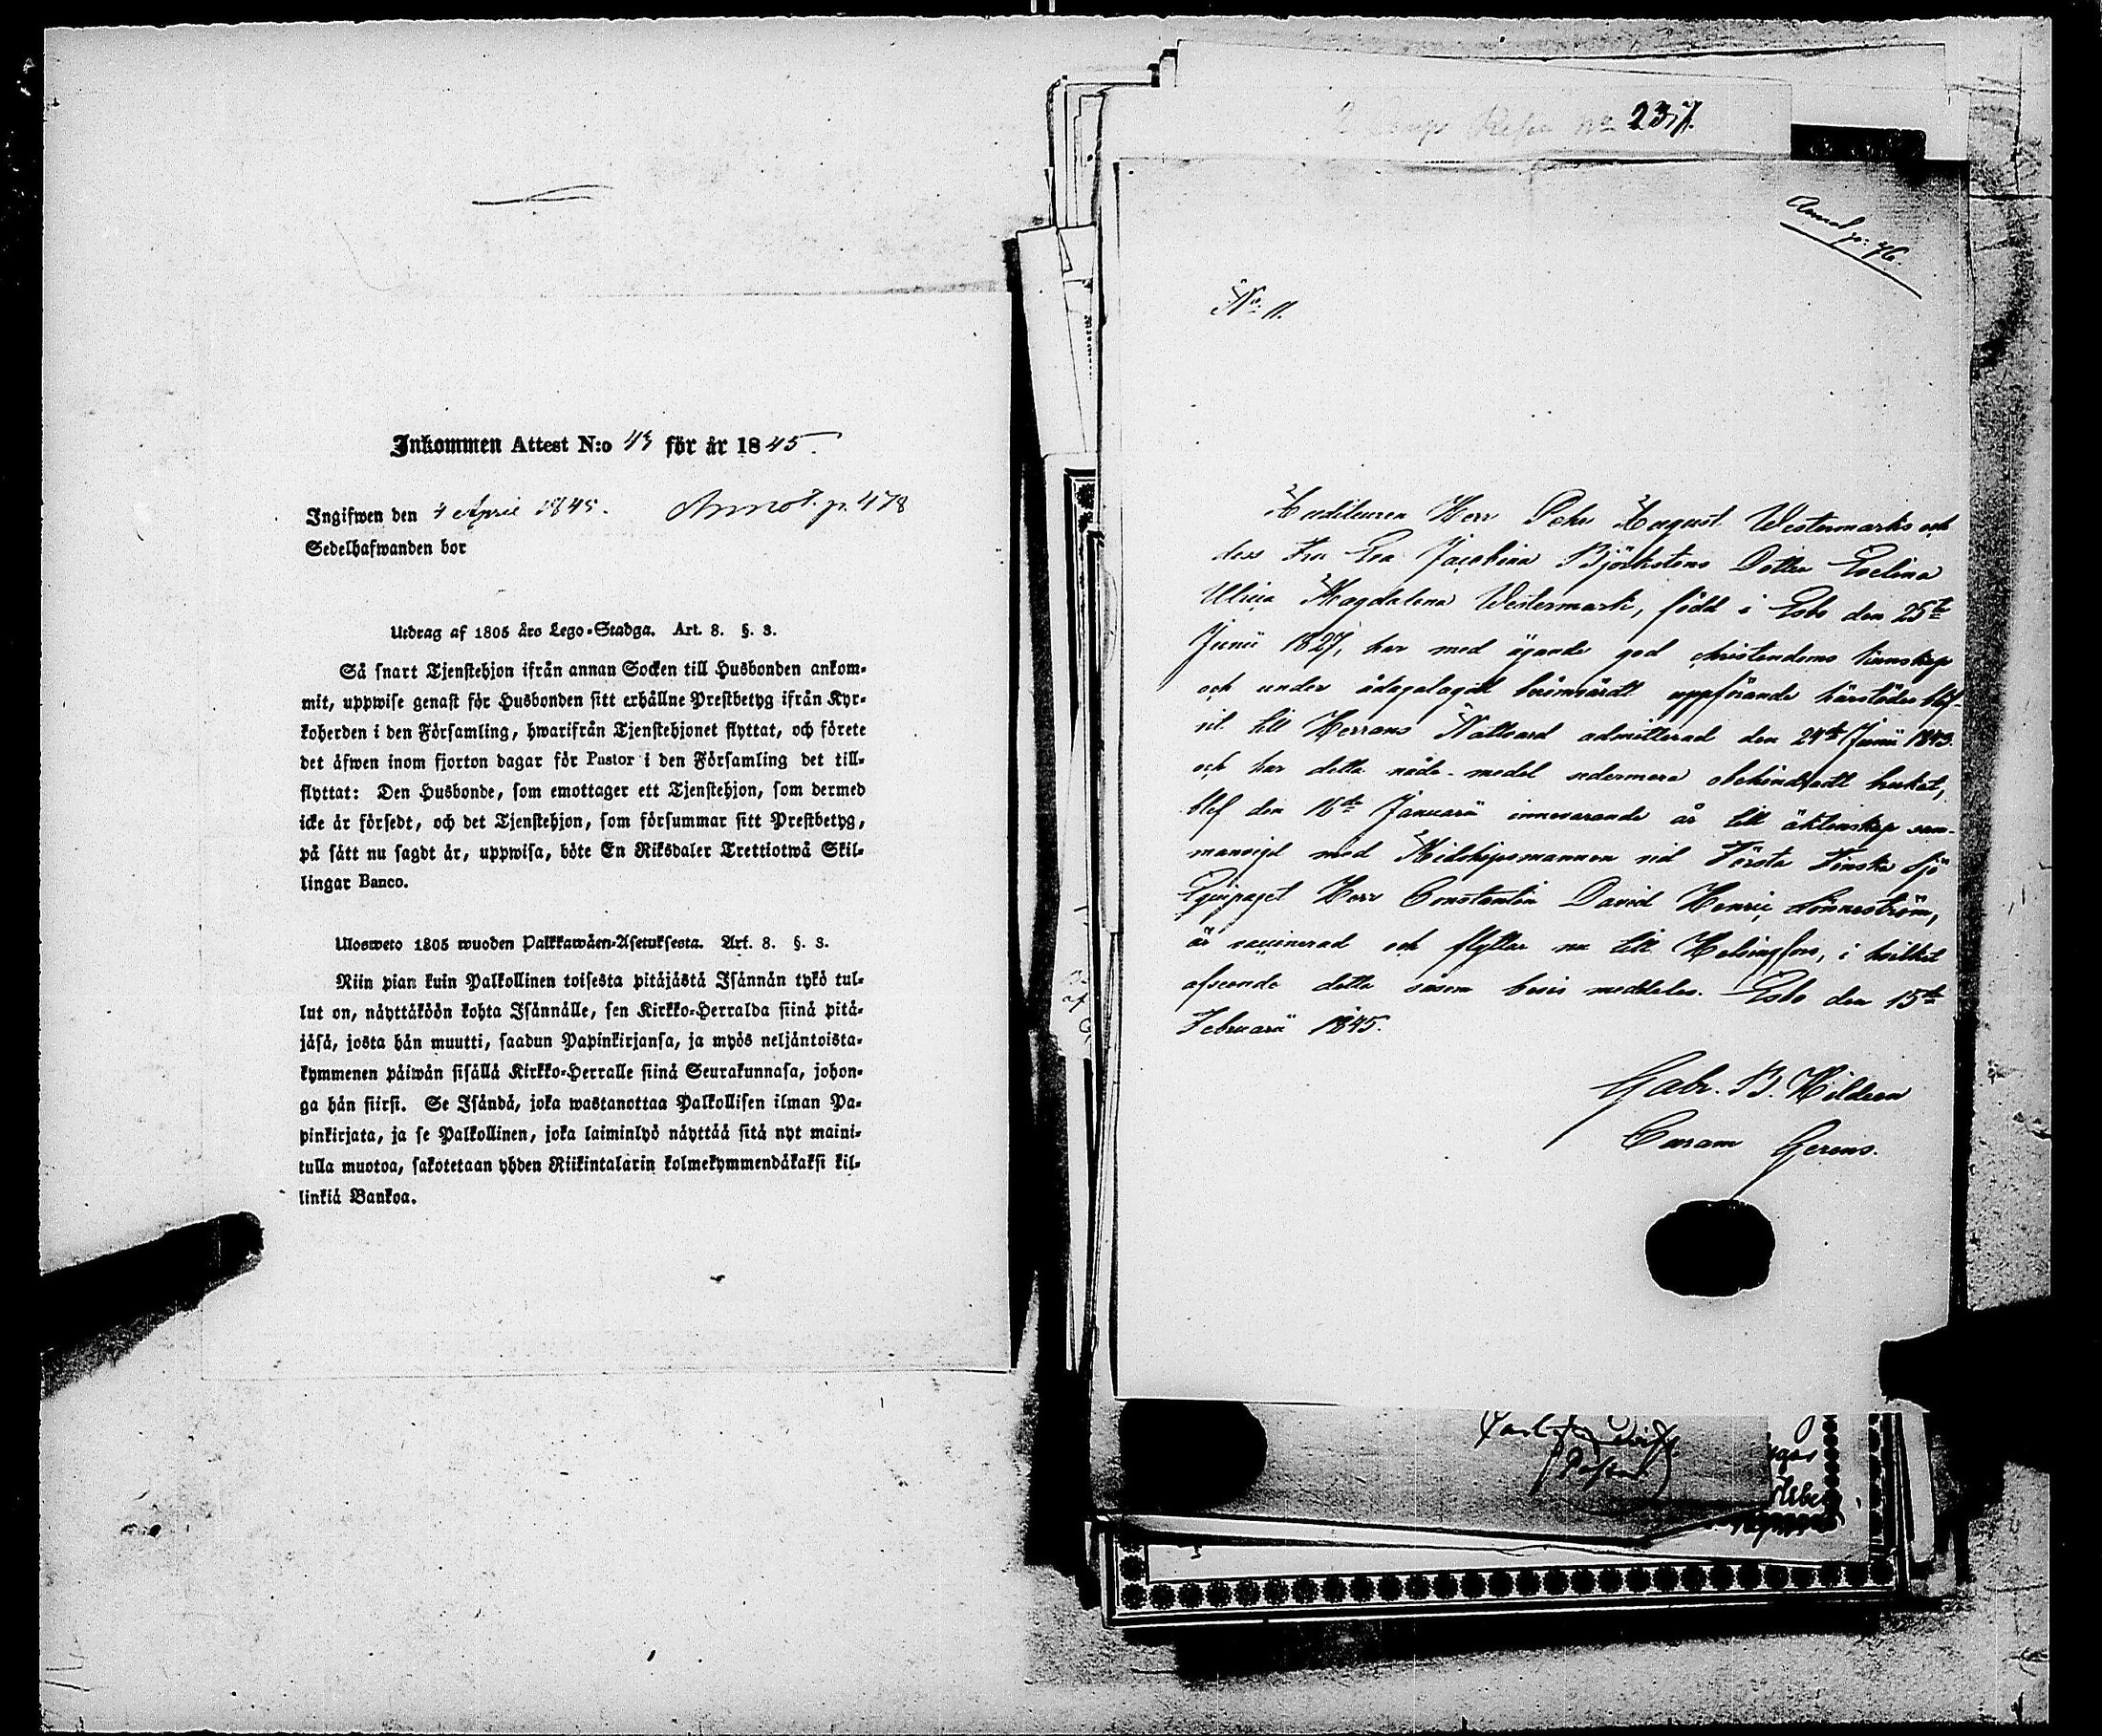 Inkommen Attest N:o 43 för år 1845.
Ingifwen den 4 April 1845. Annot. p. 478
Sedelhafwanden bor
Utdrag af 1805 års Lego-Stadga. Art. 8. §. 3.
Så snart Tjenstehjon ifrån annan Socken till Husbonden ankom-
mit, uppwise genast för Husbonden sitt erhållne Prestbetyg ifrån Kyr-
koherden i den Församling, hwarifrån Tjenstehjonet flyttat, och förete
det äfwen inom fjorton dagar för Pastor i den Församling det till-
flyttat: Den Husbonde, som emottager ett Tjenstehjon, som dermed
icke är försedt, och det Tjenstehjon, som försummar sitt Prestbetyg,
på sätt nu sagdt är, uppwisa, böte En Riksdaler Trettiotwå Skil-
lingar Banco.
Ulosweto 1805 wuoden Palkkawäen-Asetuksesta. Art. 8. §. 3.
Niin pian kuin Palkollinen toisesta pitäjästä Isännän tykö tul-
lut on, näyttäköön kohta Isännälle, sen Kirkko-Herralda siinä pitä-
jäsä, josta hän muutti, saadun Papinkirjansa, ja myös neljäntoista-
kymmenen päiwän sisällä Kirkko-Herralle siinä Seurakunnasa, johon-
ga hän siirsi. Se Isändä, joka wastanottaa Palkollisen ilman Pa-
pinkirjata, ja se Palkollinen, joka laiminlyö näyttää sitä nyt maini-
tulla muotoa, sakotetaan yhden Riikintalarin kolmekymmendäkaksi kil-
linkiä Bankoa.
No 237.
Annot p: 76.
No 11.
Auditeuren Herr Pehr August Westermarks och
dess Fru Eva Jacobina Björkstens Dotter Evelina
Ulrica Magdalena Westermark, född i Esbo den 25te
Junii 1827, har med ägande god christendoms kunskap
och under ådagalagdt berömvärdt uppförande härstädes blif-
vit till Herrans Nattvard admitterad den 24de Junii 1843.
och har detta nåde-medel sedermera obehindradt brukat,
blef den 16de Januarii innevarande år till äktenskap sam-
manvigd med Midshipsmannen vid Första Finska Sjö
Equipaget Herr Constantin David Henric Lönneström,
är vaccinerad och flyttar nu till Helsingfors, i hvilket
afseende detta såsom bevis meddelas. Esbo den 15de
Februarii 1845.
Gabr. B. Hildeen
Curam Gerens.